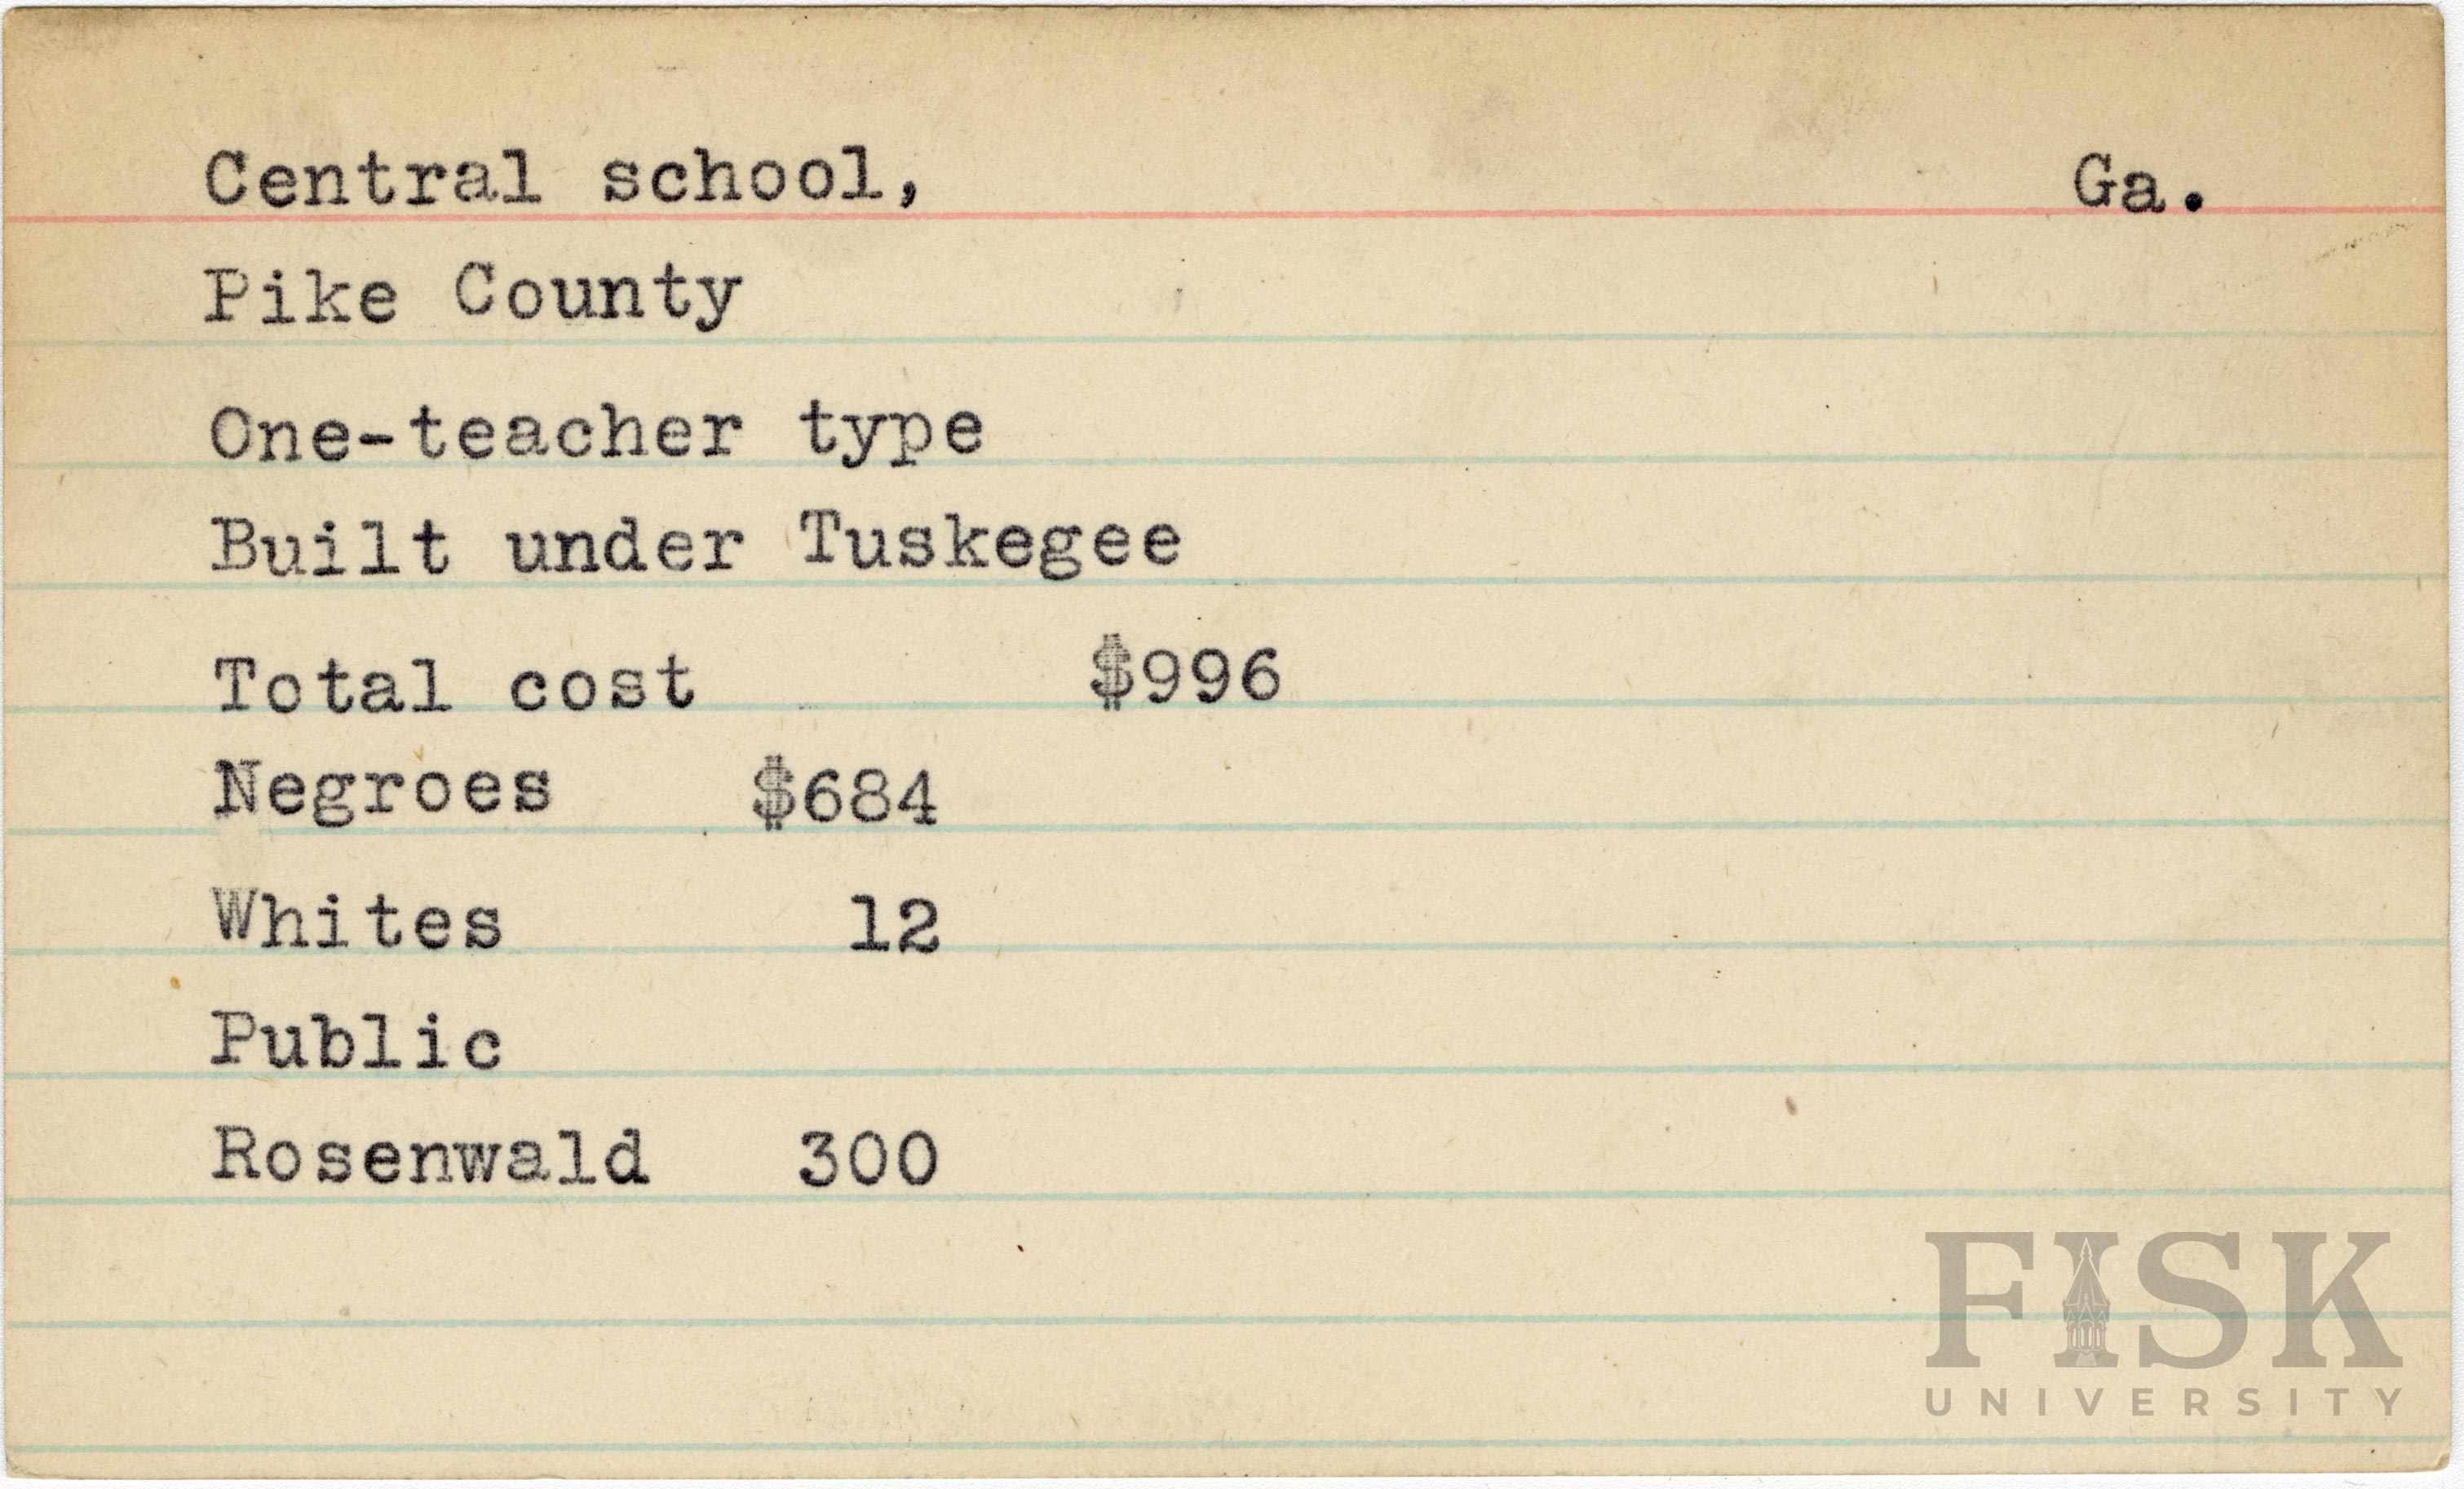 Central school, Ga.
Pike County
One-teacher type
Built under Tuskegee
Total cost $996
Negroes $684
Whites 12
Public
Rosenwald 300
FISK
UNIVERSITY